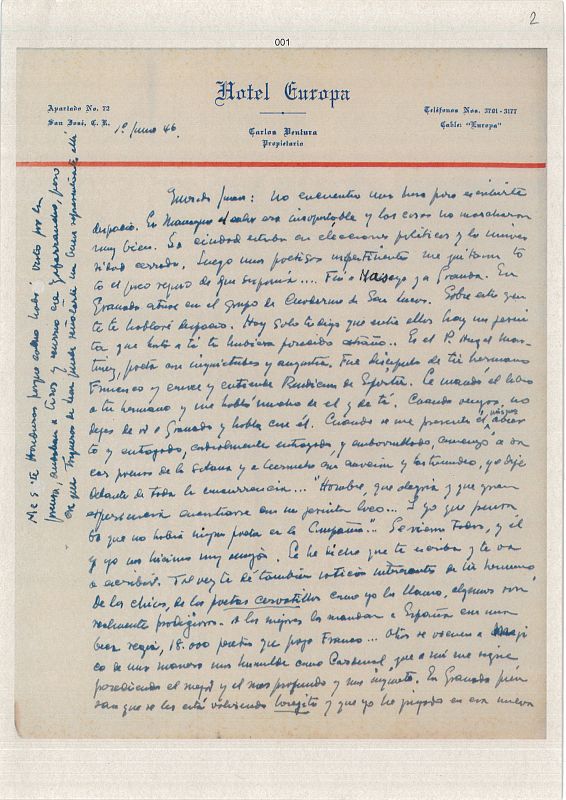 2
001
Hotel Europa
Apartado No. 72
San José, C. R.
Carlos Ventura
Propietario
Teléfonos Nos. 3701 - 3177
Cable: "Europa"
1º Junio 46
Querido Juan: no encuentro una hora para escribirte
despacio. En Managua el calor era insoportable y las cosas no marcharon
muy bien. La ciudad estaba en elecciones políticas y la univer
sidad cerrada. Luego unos poetisos impertinentes me quitaron to
to el poco reposo de que disponía.... Fuí a Masaya y a Granada. En
Granada estuve en el grupo de Cuaderno de San Lucas. Sobre esta gen
te te hablaré despacio. Hoy solo te digo que entre ellos hay un jesui
ta que hasta a tí te hubiera parecido extraño.. Es el P. Angel Mar-
tinez, poeta con inquietudes y angustia. Fue discípulo de tu hermano
Francisco y conoce y entiende Rendición de Espíritu. Le mandó el libro
a tu hermano y me habló mucho de él y de tí. Cuando vengas, no
dejes de ir a Granada y habla con él. Cuando se me presentó el
to y entregado, cordialmente entregado, y emborrullado, comenzó a
car poemas de la sotana y a leermelos con y tartamudeo, yo dije
delante de toda la concurrencia... "Hombre, que alegría y que gran
experiencia encontrarse con un jesuita loco... Y yo que pensa
ba que no había ningun poeta en la Compañía".. Se rieron todos, y él
y yo nos hicimos muy amigos. Le he dicho que te escriba y te va
a escribir. Tal vez te dé tambien noticias interesantes de tu hermano.
De los chicos, de los poetas cervatillos como yo los llamo, algunos son
realmente prodigiosos. A los mejores los mandan a España con una
beca regia, 18.000 pesetas que paga Franco... Otros se vienen a Meji
co de una manera mas humilde como Cardenal, que a mí me sigue
pareciendo el mejor y el mas profundo y mas inquieto. En Granada pien
san que se les está volviendo lorquito y que yo he in en esa nueva
Me sé ir a Honduras porque estaba todo visto por la
prensa, anunciaban a Cisos y era Gaparrandos, pero